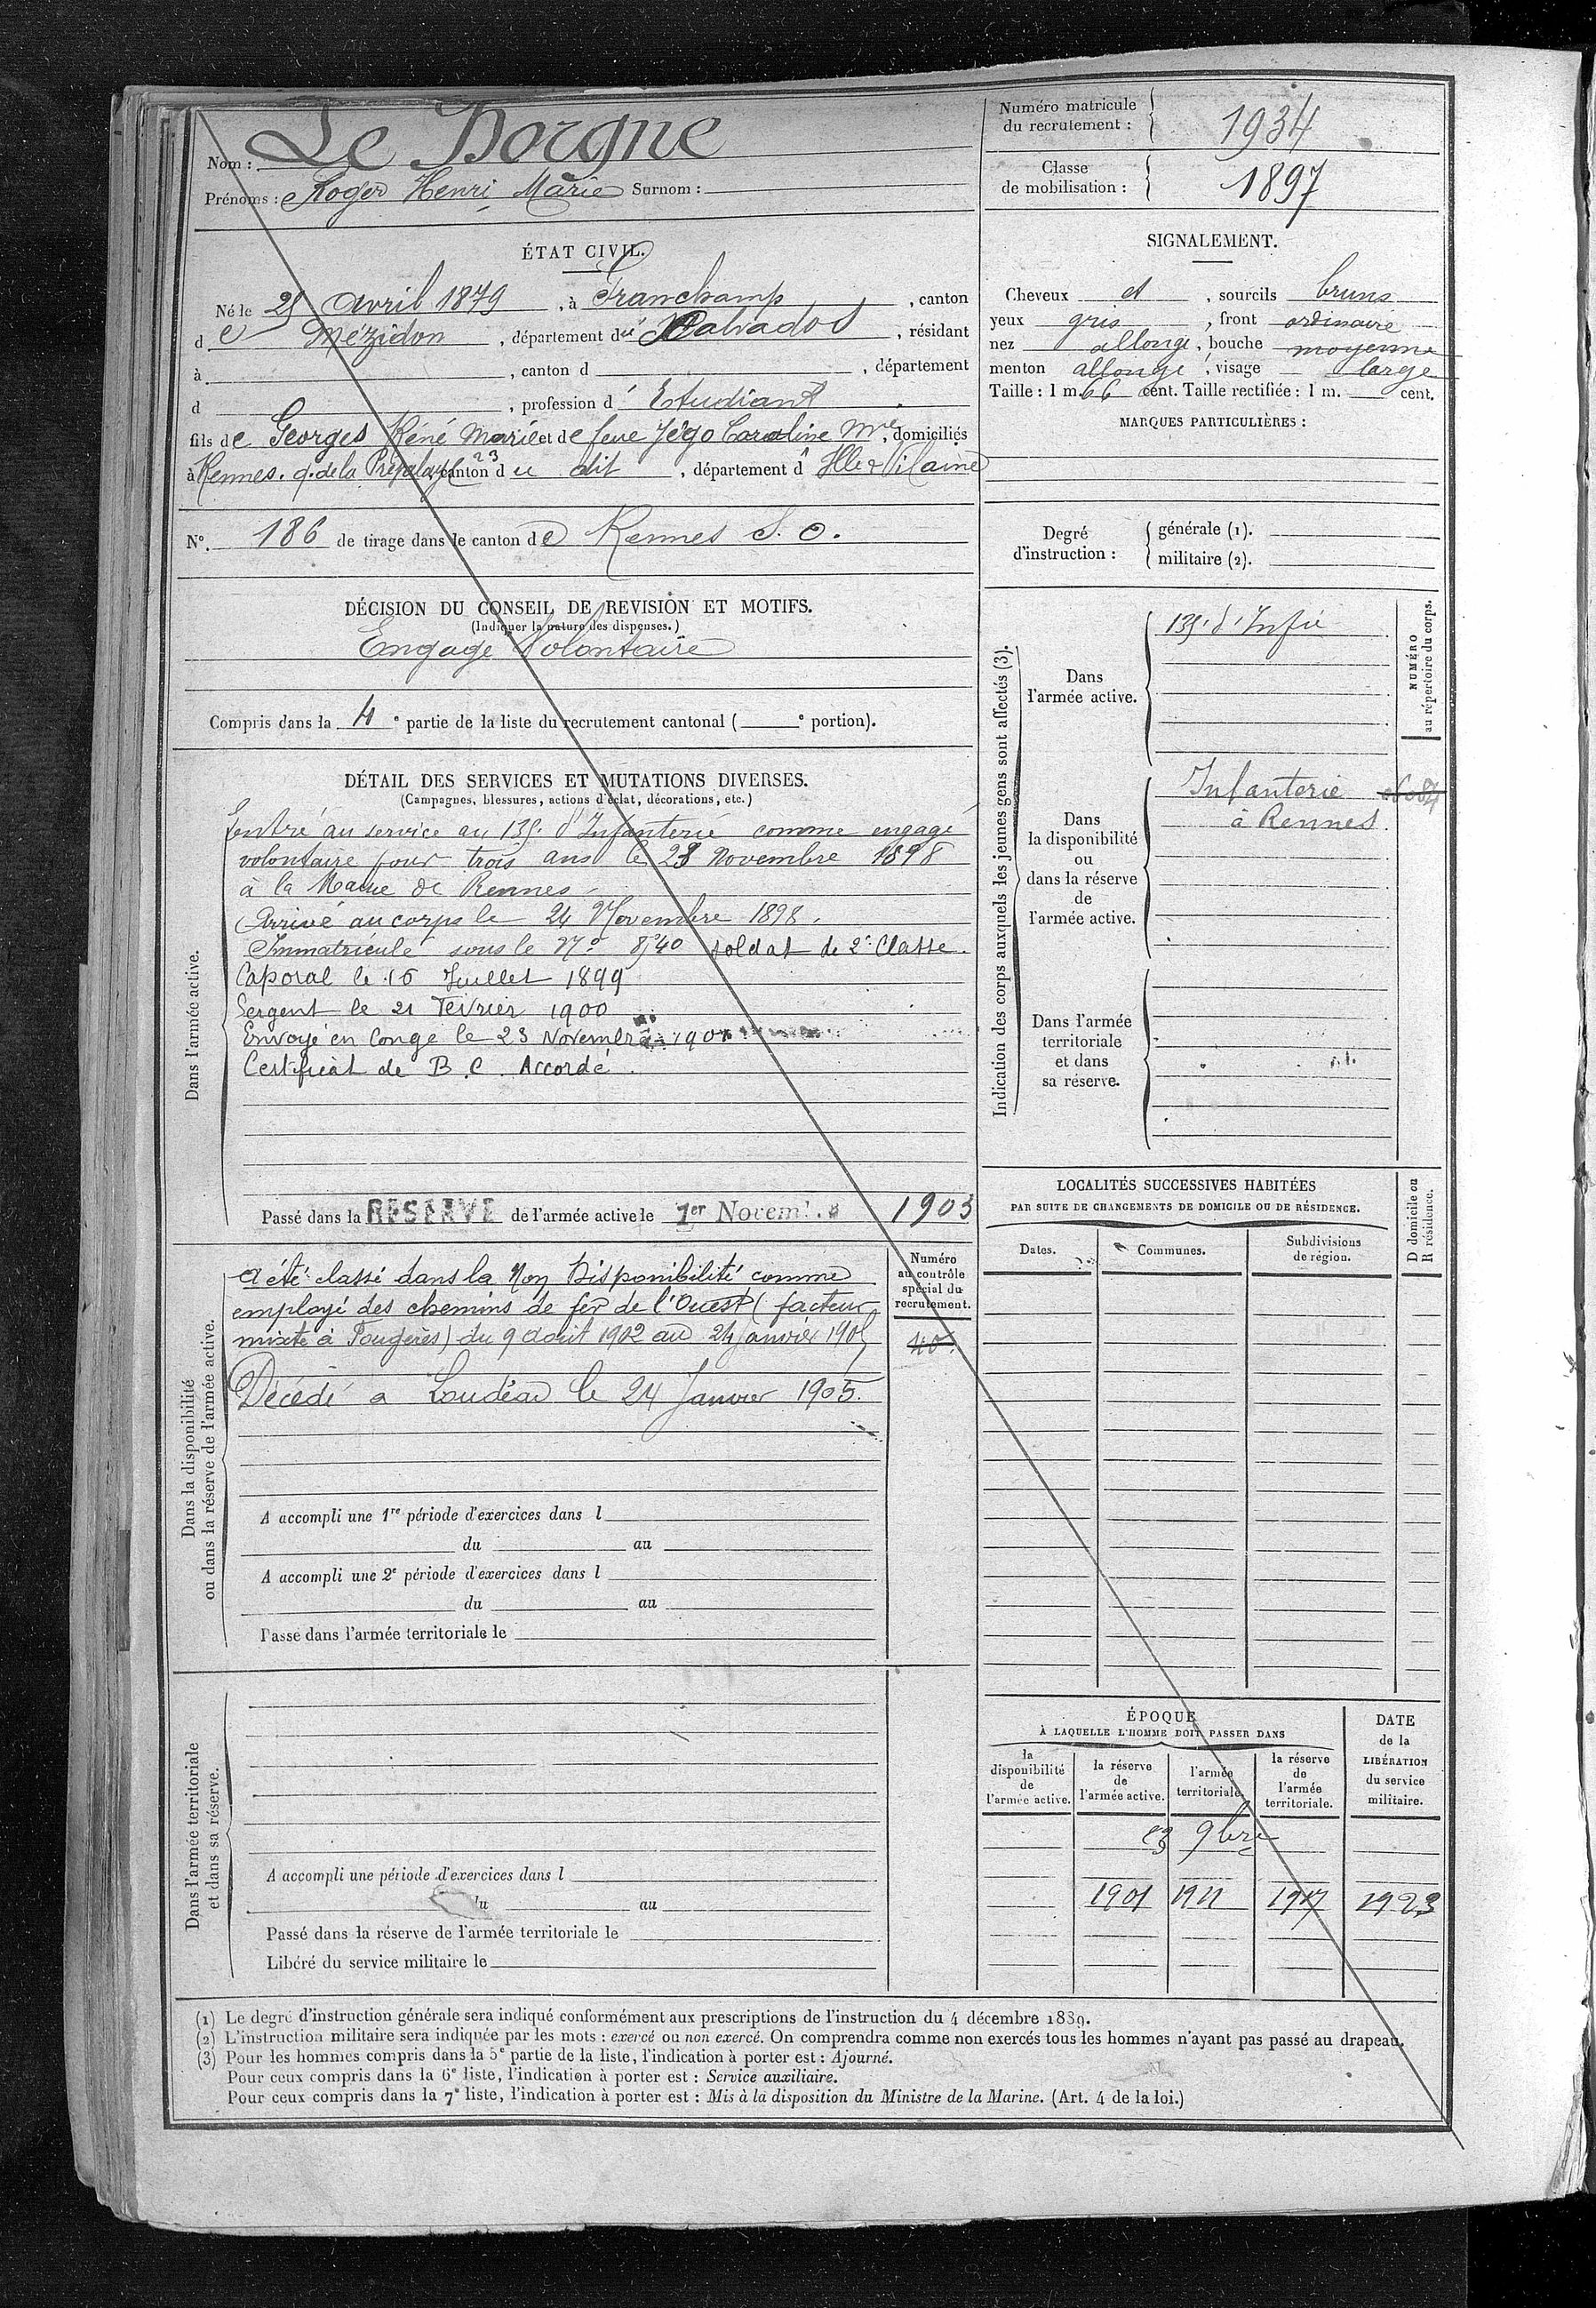 Nom : Le Borgne
Prénoms : Roger Henri Marie Surnom :
Numéro matricule du recrutement : 1934
Classe de mobilisation : 1897
ÉTAT CIVIL.
Né le 25 avril 1879, à Franchamp, canton
de Mézidon, département du Calvados, résidant
à , canton d , département
d , profession d' Etudiant
fils de Georges Réné Marie et de feue Jégo Caroline Mie, domiciliés
à Rennes. q. de la Prévalaye 23 canton du dit, département d' Ille & Vilaine
N°. 186 de tirage dans le canton de Rennes S. O.
SIGNALEMENT.
Cheveux et , sourcils bruns
yeux gris , front ordinaire
nez allongé , bouche moyenne
menton allongé , visage large
Taille : 1 m. 66 cent. Taille rectifiée : 1 m. cent.
MARQUES PARTICULIÈRES :
Degré d'instruction :
générale (1).
militaire (2).
DÉCISION DU CONSEIL DE REVISION ET MOTIFS.
(Indiquer la nature des dispenses.)
Engagé Volontaire
Compris dans la 4e partie de la liste du recrutement cantonal ( e portion).
DÉTAIL DES SERVICES ET MUTATIONS DIVERSES.
(Campagnes, blessures, actions d'éclat, décorations, etc.)
Dans l'armée active.
Entré au service au 135e d'Infanterie comme engagé
volontaire pour trois ans le 23 Novembre 1898
à la Mairie de Rennes
Arrivé au corps le 24 Novembre 1898.
Immatriculé sous le No soldat de 2e Classe.
Caporal le 16 Juillet 1899
Sergent le 21 Février 1900
Envoyé en Congé le 23 Novembre 1901
Certificat de B. C. Accordé.
Passé dans la RESERVE de l'armée active le 1er Novembre 1903
Indication des corps auxquels les jeunes gens sont affectés (3).
NUMÉRO au répertoire du corps.
Dans l'armée active.
135e d'Infie
Dans la disponibilité ou dans la réserve de l'armée active.
Infanterie
à Rennes.
Dans l'armée territoriale et dans sa réserve.
Dans la disponibilité ou dans la réserve de l'armée active.
A été classé dans la Non Disponibilité comme
employé des chemins de fer de l'Ouest (facteur
mixte à Fougères) du 9 août 1902 au 24 janvier 1905
Décédé à Loudéac le 24 Janvier 1905.
Numéro au contrôle spécial du recrutement.
40.
A accompli une 1re période d'exercices dans l
du au
A accompli une 2e période d'exercices dans l
du au
Passé dans l'armée territoriale le
LOCALITÉS SUCCESSIVES HABITÉES
PAR SUITE DE CHANGEMENTS DE DOMICILE OU DE RÉSIDENCE.
Dates.
Communes.
Subdivisions de région.
D domicile ou R résidence.
Dans l'armée territoriale et dans sa réserve.
A accompli une période d'exercices dans l
du au
Passé dans la réserve de l'armée territoriale le
Libéré du service militaire le
ÉPOQUE
À LAQUELLE L'HOMME DOIT PASSER DANS
la disponibilité de l'armée active.
la réserve de l'armée active.
l'armée territoriale.
la réserve de l'armée territoriale.
DATE de la LIBÉRATION du service militaire.
23 9bre
1901 1911 1917 1923
(1) Le degré d'instruction générale sera indiqué conformément aux prescriptions de l'instruction du 4 décembre 1889.
(2) L'instruction militaire sera indiquée par les mots : exercé ou non exercé. On comprendra comme non exercés tous les hommes n'ayant pas passé au drapeau.
(3) Pour les hommes compris dans la 5e partie de la liste, l'indication à porter est : Ajourné.
Pour ceux compris dans la 6e liste, l'indication à porter est : Service auxiliaire.
Pour ceux compris dans la 7e liste, l'indication à porter est : Mis à la disposition du Ministre de la Marine. (Art. 4 de la loi.)